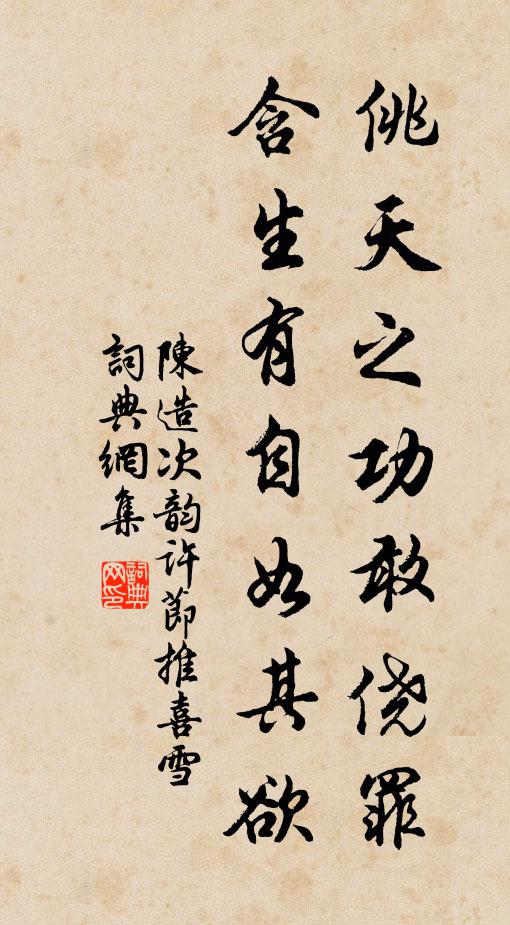 佻天之功敢侥罪
含生有自如其欲
陳造次韵许節推喜雪
詞典網集
詞典网印